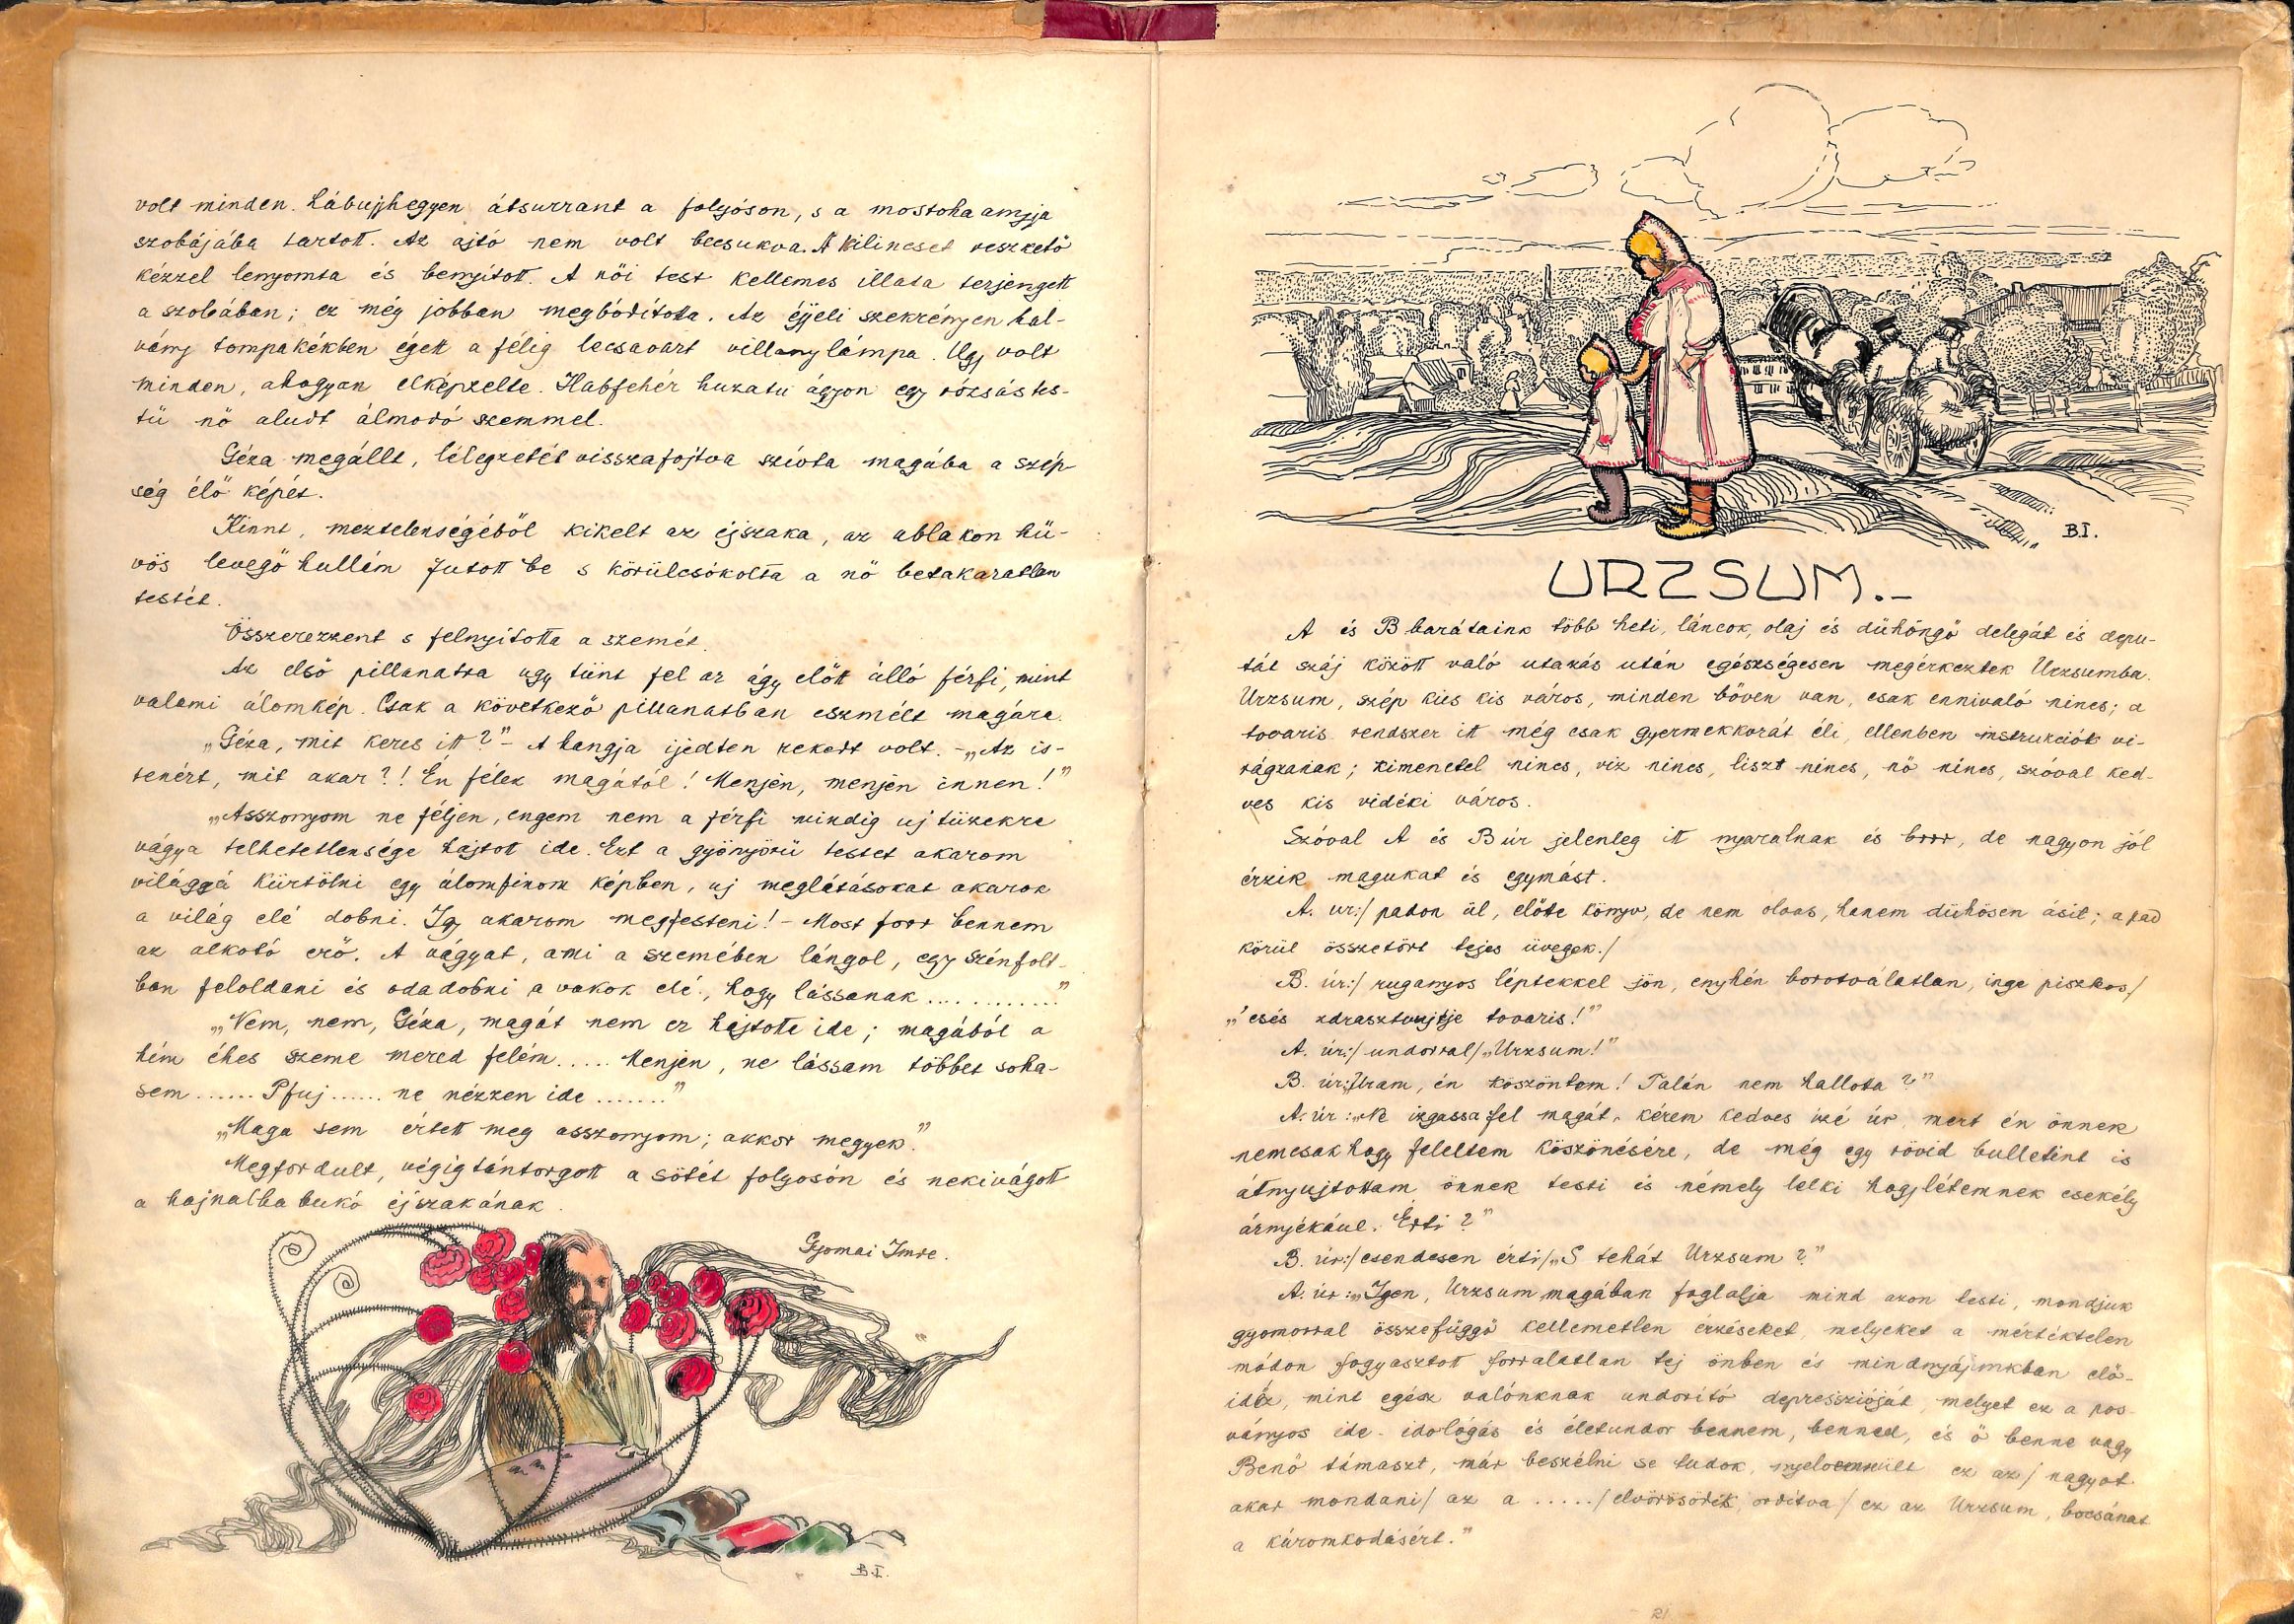 volt minden. Lábujjhegyen átsurrant a folyóson, s a mostoha anyja
szobájába tartott. Az ajtó nem volt becsukva. A kilincset reszkető
kézzel lenyomta és benyitott. A női test kellemes illata terjengett
a szobában; ez még jobban megbódította. Az éjjeli szekrényen hal-
vány tompakékben égett a félig lecsavart villanylámpa. Ugy volt
minden, ahogyan elképzelte. Habfehér huzatu ágyon egy rózsás tes-
tü nő aludt álmodó szemmel.
Géza megállt, lélegzetét visszafojtva szívta magába a szép-
ség élő képét.
Kinnt, meztelenségéből kikelt az éjszaka, az ablakon hü-
vös levegő hullám jutott be s körülcsókolta a nő betakaratlan
testét.
Összerezzent s felnyitotta a szemét.
Az első pillanatra ugy tünt fel az ágy előtt álló férfi, mint
valami álomkép. Csak a következő pillanatban eszmélt magára.
„Géza, mit keres itt?" - A hangja ijedten rekedt volt. - „Az is-
tenért, mit akar?! Én félek magától! Menjen, menjen innen!"
„Asszonyom ne féljen, engem nem a férfi mindig uj tüzekre
vágya telhetetlensége hajtott ide. Ezt a gyönyörü testet akarom
világgá kürtölni egy álomfinom képben, uj meglátásokat akarok
a világ elé dobni. Igy akarom megfesteni! - Most forr bennem
az alkotó erő. A vágyat, ami a szemében lángol, egy színfolt-
ban feloldani és oda dobni a vakok elé, hogy lássanak ............"
„Nem, nem, Géza, magát nem ez hajtotta ide; magából a
hím éhes szeme mered felém ..... Menjen, ne lássam többet soha-
sem ...... Pfuj ...... ne nézzen ide ......."
„Maga sem értett meg asszonyom; akkor megyek."
Megfordult, végigtántorgott a sötét folyosón és nekivágott
a hajnalba bukó éjszakának.
Gyomai Imre.
B.I.
B.I.
URZSUM.-
A és B barátaink több heti, láncok, olaj és dühöngő delegát és depu-
tát száj között való utazás után egészségesen megérkeztek Urzsumba.
Urzsum, szép kies kis város, minden bőven van, csak ennivaló nincs; a
tovaris rendszer itt még csak gyermekkorát éli, ellenben instrukciók vi-
rágzanak; kimenetel nincs, viz nincs, liszt nincs, nő nincs, szóval ked-
ves kis vidéki város.
Szóval A és B úr jelenleg itt nyaralnak és brrr, de nagyon jól
érzik magukat és egymást.
A. ur:/ padon ül, előtte könyv, de nem olvas, hanem dühösen ásit; a pad
körül összetört tejes üvegek./
B. úr:/ ruganyos léptekkel jön, enyhén borotválatlan, inge piszkos/
„'csés zdrasztvujtje tovaris!"
A. úr:/ undorral/ „Urzsum!"
B. úr: „Uram, én köszöntem! Talán nem hallotta?"
A. úr: „Ne izgassa fel magát, kérem kedves izé úr, mert én önnek
nemcsak hogy feleltem köszönésére, de még egy rövid bulletint is
átnyujtottam önnek testi és némely lelki hogylétemnek csekély
árnyékául. Érti?"
B. úr:/ csendesen érti/ „S tehát Urzsum?"
A. úr: „Igen, Urzsum magában foglalja mind azon testi, mondjuk
gyomorral összefüggő kellemetlen érzéseket, melyeket a mértéktelen
módon fogyasztott forralatlan tej önben és mindnyájunkban elő-
idéz, mint egész valónknak undorító depresszióját, melyet ez a pos-
ványos ide- idológás és életundor bennem, benned, és ő benne vagy
Benő támaszt, már beszélni se tudok, ez az/ nagyot
akar mondani/ az a ...../ elvörösödik, orditva/ ez az Urzsum, bocsánat
a káromkodásért."
21